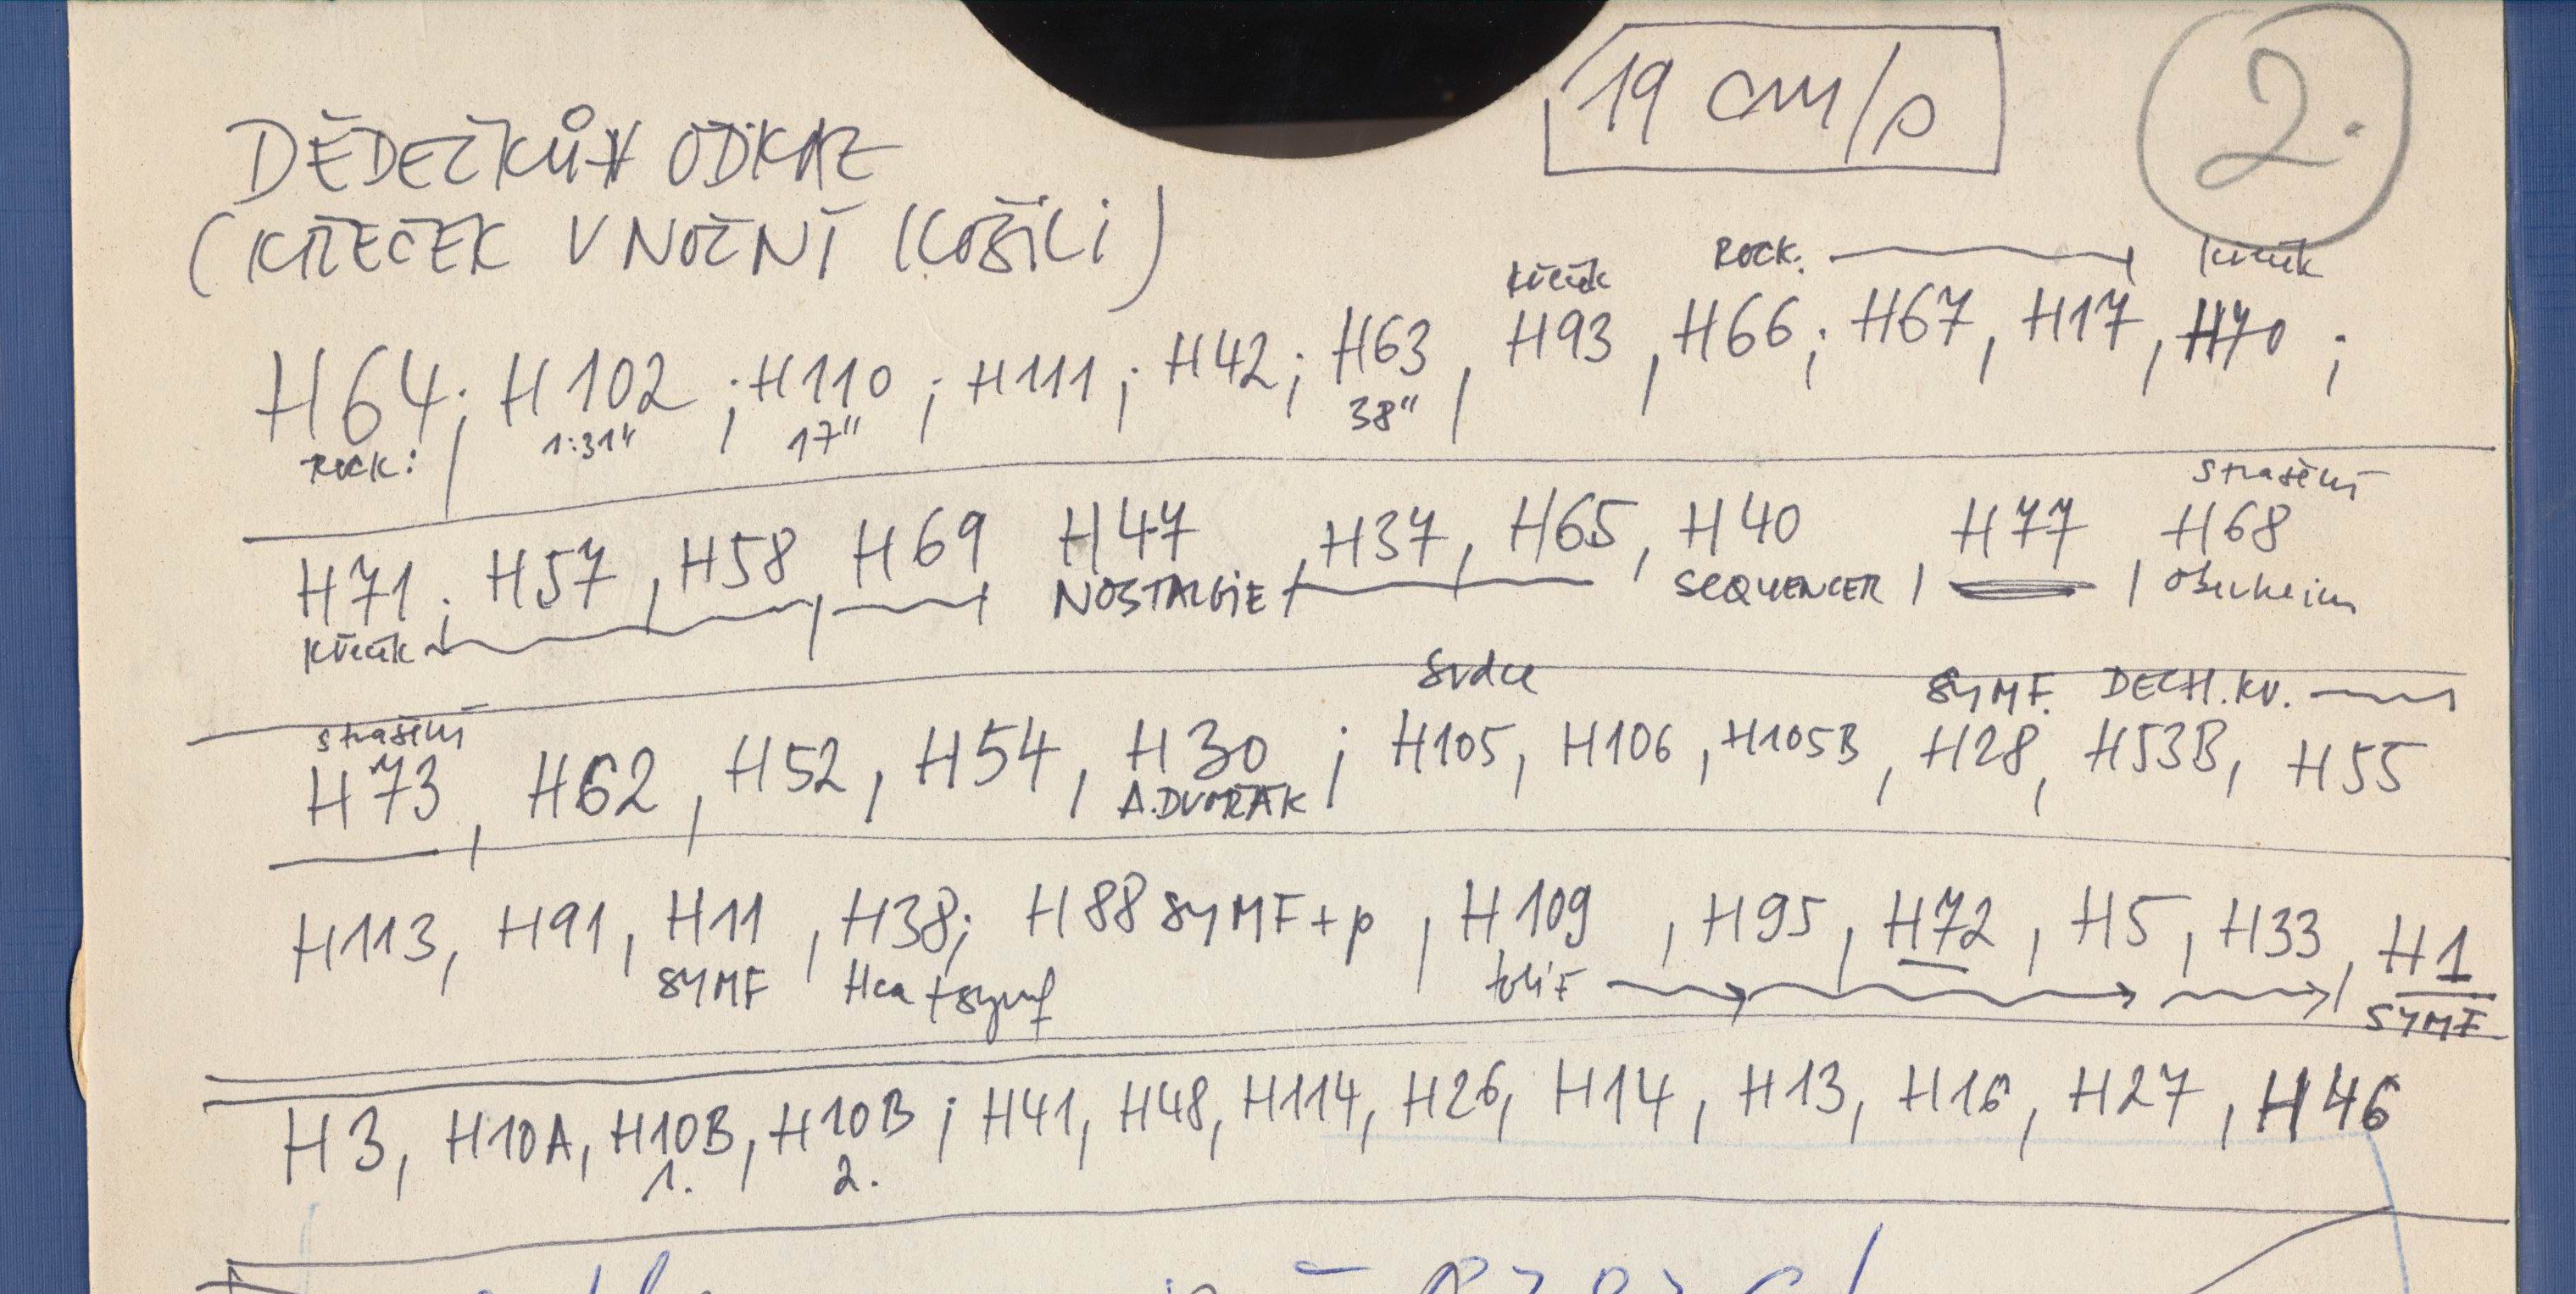 19 cm/s
2.
DĚDEČKŮV ODKAZ
(KŘEČEK V NOČNÍ KOŠILI)
křeček ROCK: křeček
H64; H102; H110; H111; H42; H63, H93, H66; H67, H17, H70;
ROCK: 1:31" 17" 38"
strašení
H71; H57, H58, H69, H47, H37, H65, H40, H77, H68
křeček NOSTALGIE SEQUENCER Oberheim
strašení srdce SYMF. DECH.KV.
H73, H62, H52, H54, H30; H105, H106, H105B, H28, H53B, H55
A.DVOŘÁK
H113, H91, H11, H38; H88 SYMF+p, H109, H95, H72, H5, H33, H1
SYMF Hca+symf SYMF
H3, H10A, H10B, H10B; H41, H48, H114, H26, H14, H13, H16, H27, H46
1. 2.